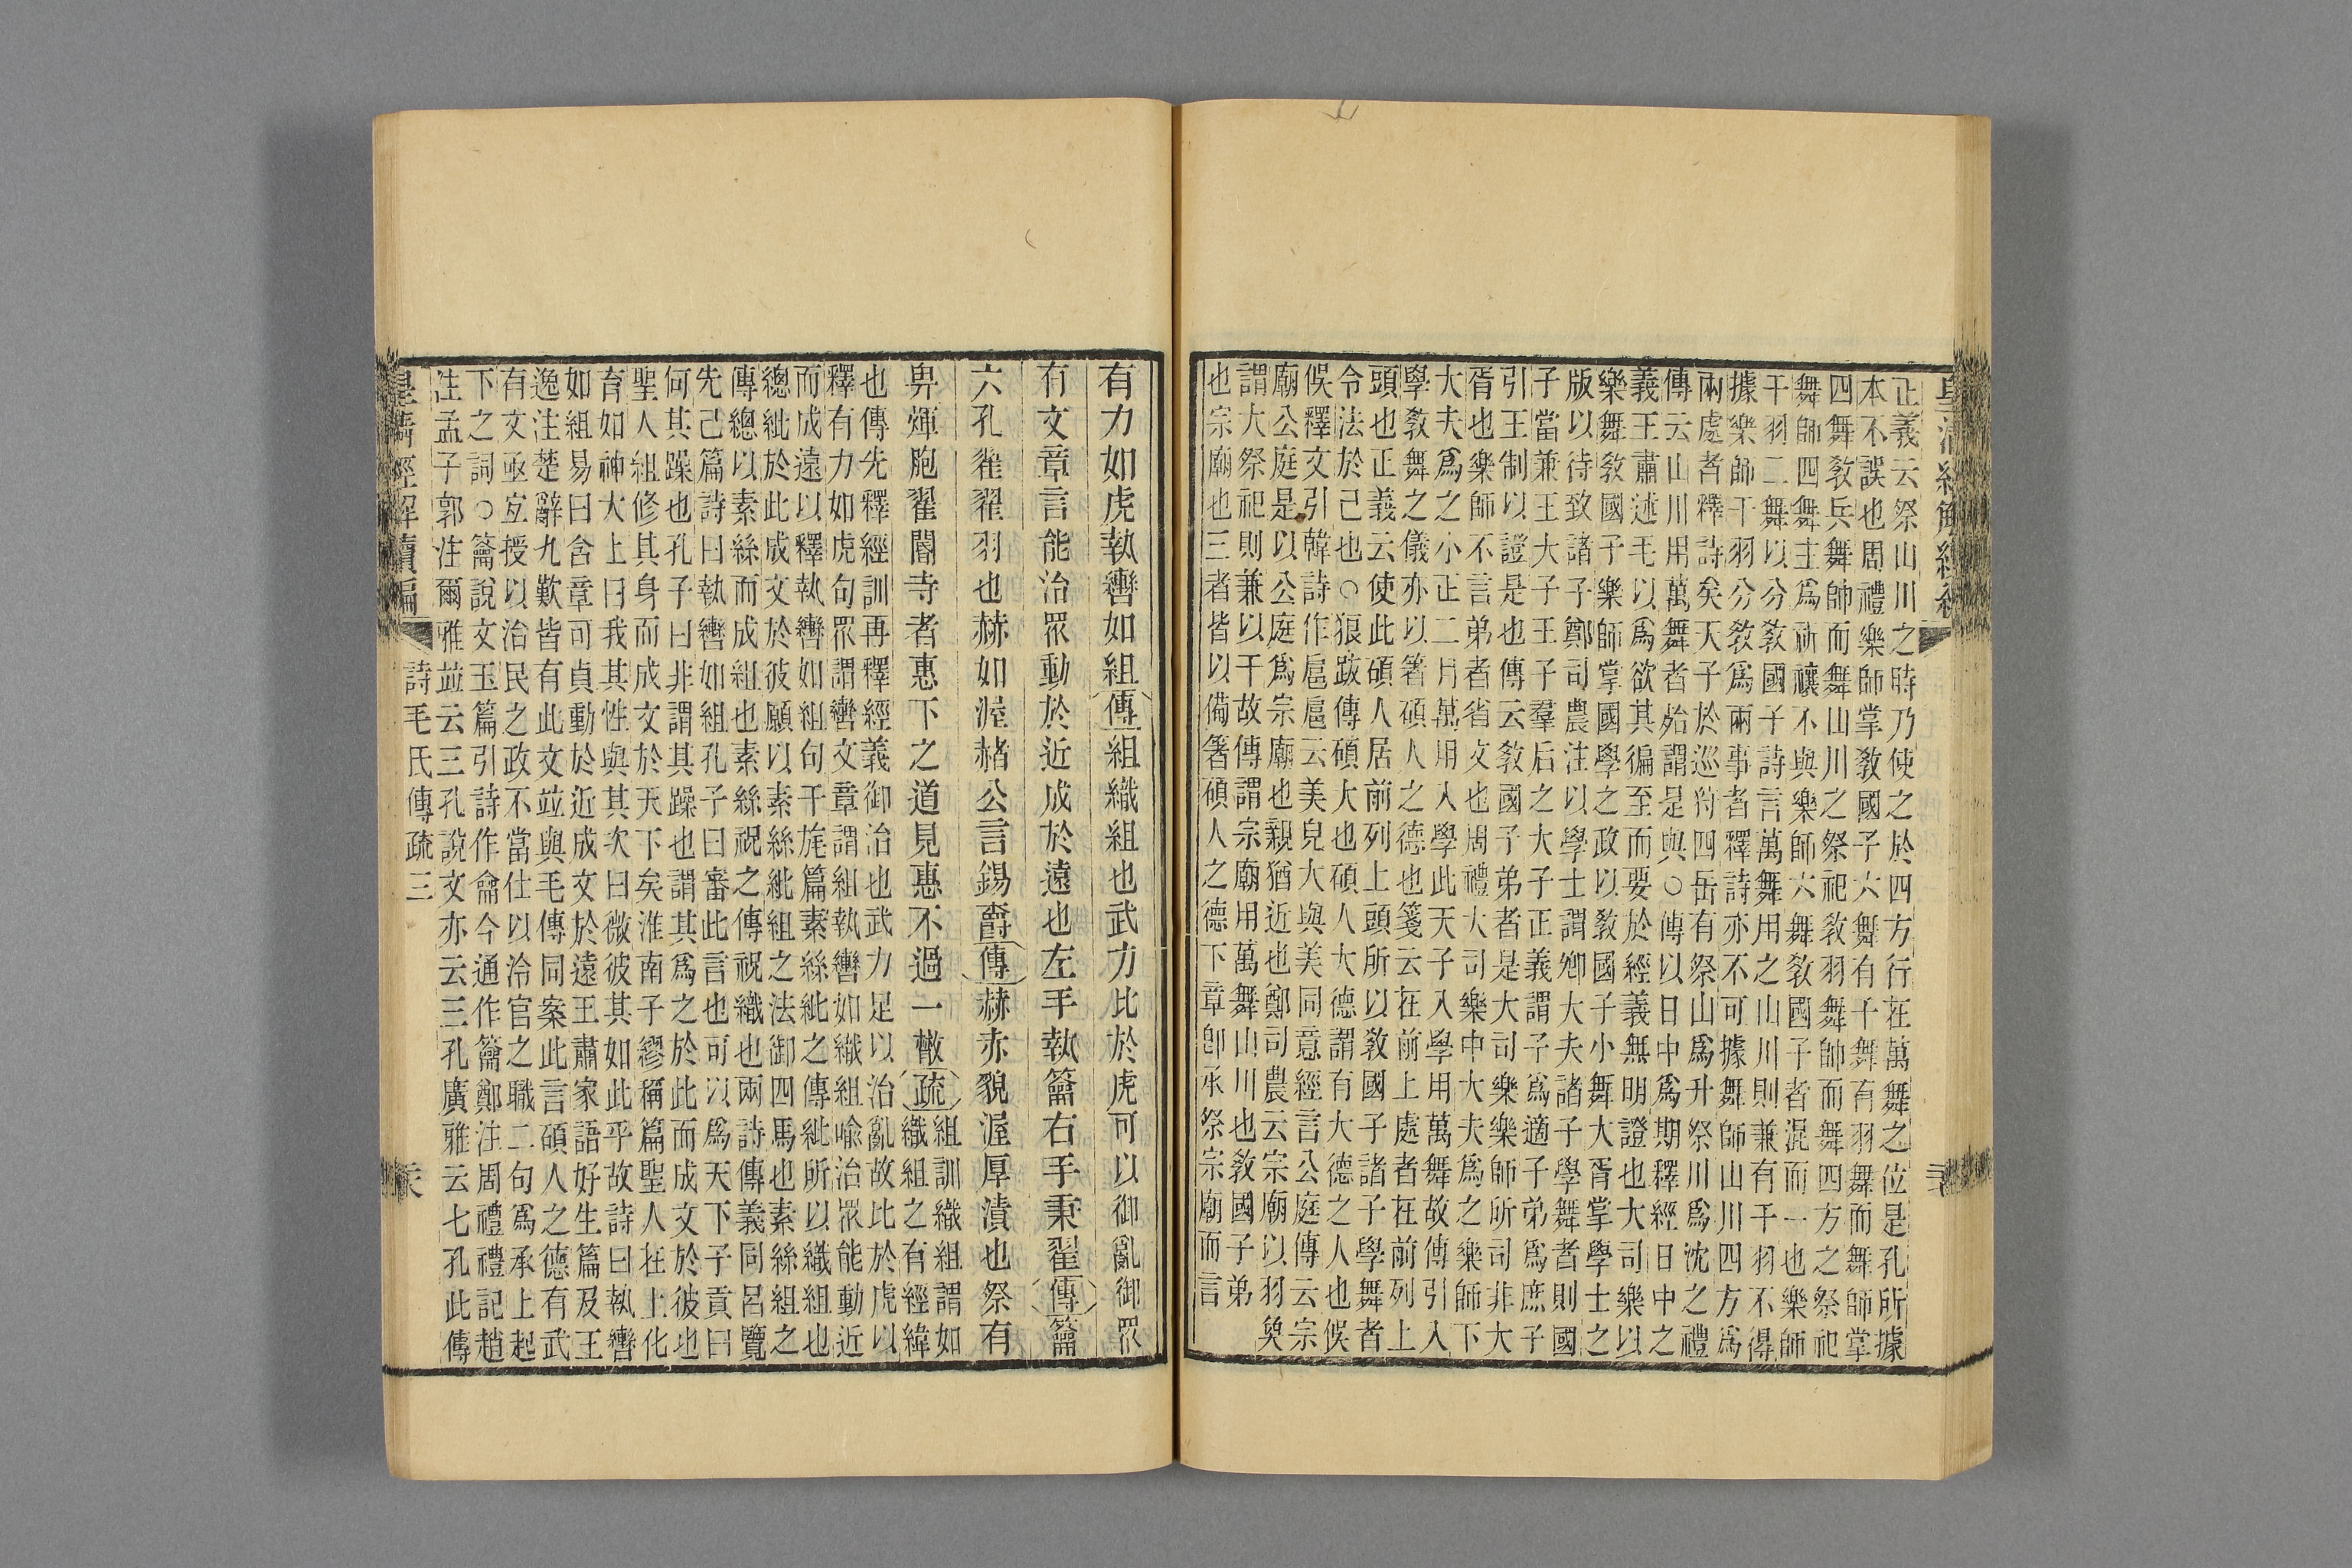 皇清經解續編
正義云祭山川之時乃使之於四方行在萬舞之位是孔所據
本不誤也周禮樂師掌教國子六舞有干舞有羽舞而舞師掌
四舞教兵舞帥而舞山川之祭祀教羽舞帥而舞四方之祭祀
舞師四舞主爲祈禳不與樂師六舞教國子者混而一也樂師
干羽二舞以分教國子詩言萬舞用之山川則兼有干羽不得
據樂師干羽分教爲兩事者釋詩亦不可據舞師山川四方爲
兩處者釋詩矣天子於巡狩四岳有祭山爲升祭川爲沈之禮
傳云山川用萬舞者殆謂是與○傳以日中爲期釋經日中之
義王肅述毛以爲欲其徧至而要於經義無明證也大司樂以
樂舞教國子樂師掌國學之政以教國子小舞大胥掌學士之
版以待致諸子鄭司農注以學士謂卿大夫諸子學舞者則國
子當兼王大子王子羣后之大子正義謂子爲適子弟爲庶子
引王制以證是也傳云教國子弟者是大司樂樂師所司非大
胥也樂師不言弟者省文也周禮大司樂中大夫爲之樂師下
大夫爲之小正二月萬用入學此天子入學用萬舞故傳引入
學教舞之儀亦以箸碩人之德也箋云在前上處者在前列上
頭也正義云使此碩人居前列上頭所以教國子諸子學舞者
令法於己也○狼跋傳碩大也碩人大德謂有大德之人也俟
俟釋文引韓詩作扈扈云美皃大與美同意經言公庭傳云宗
廟公庭是以公庭爲宗廟也親猶近也鄭司農云宗廟以羽
謂大祭祀則兼以干故傳謂宗廟用萬舞山川也教國子弟
也宗廟也三者皆以備箸碩人之德下章卽承祭宗廟而言
有力如虎執轡如組傳組織組也武力比於虎可以御亂御眾
有文章言能治眾動於近成於遠也左手執籥右手秉翟傳籥
六孔翟翟羽也赫如渥赭公言錫爵傳赫赤貌渥厚漬也祭有
畀煇胞翟閽寺者惠下之道見惠不過一散疏
組訓織組謂如
織組之有經緯
也傳先釋經訓再釋經義御治也武力足以治亂故比於虎以
釋有力如虎句眾謂轡文章謂組執轡如織組喩治眾能動近
而成遠以釋執轡如組句干旄篇素絲紕之傳紕所以織組也
總紕於此成文於彼願以素絲紕組之法御四馬也素絲組之
傳總以素絲而成組也素絲祝之傳祝織也兩詩傳義同呂覽
先己篇詩曰執轡如組孔子曰審此言也可以爲天下子貢曰
何其躁也孔子曰非謂其躁也謂其爲之於此而成文於彼也
聖人組修其身而成文於天下矣淮南子繆稱篇聖人在上化
育如神大上曰我其性與其次曰微彼其如此乎故詩曰執轡
如組易曰含章可貞動於近成文於遠王肅家語好生篇及王
逸注楚辭九歎皆有此文竝與毛傳同案此言碩人之德有武
有文亟宐授以治民之政不當仕以泠官之職二句爲承上起
下之詞○籥說文玉篇引詩作龠今通作籥鄭注周禮禮記趙
注孟子郭注爾雅竝云三孔說文亦云三孔廣雅云七孔此傳
皇清經解續編 詩毛氏傳疏三